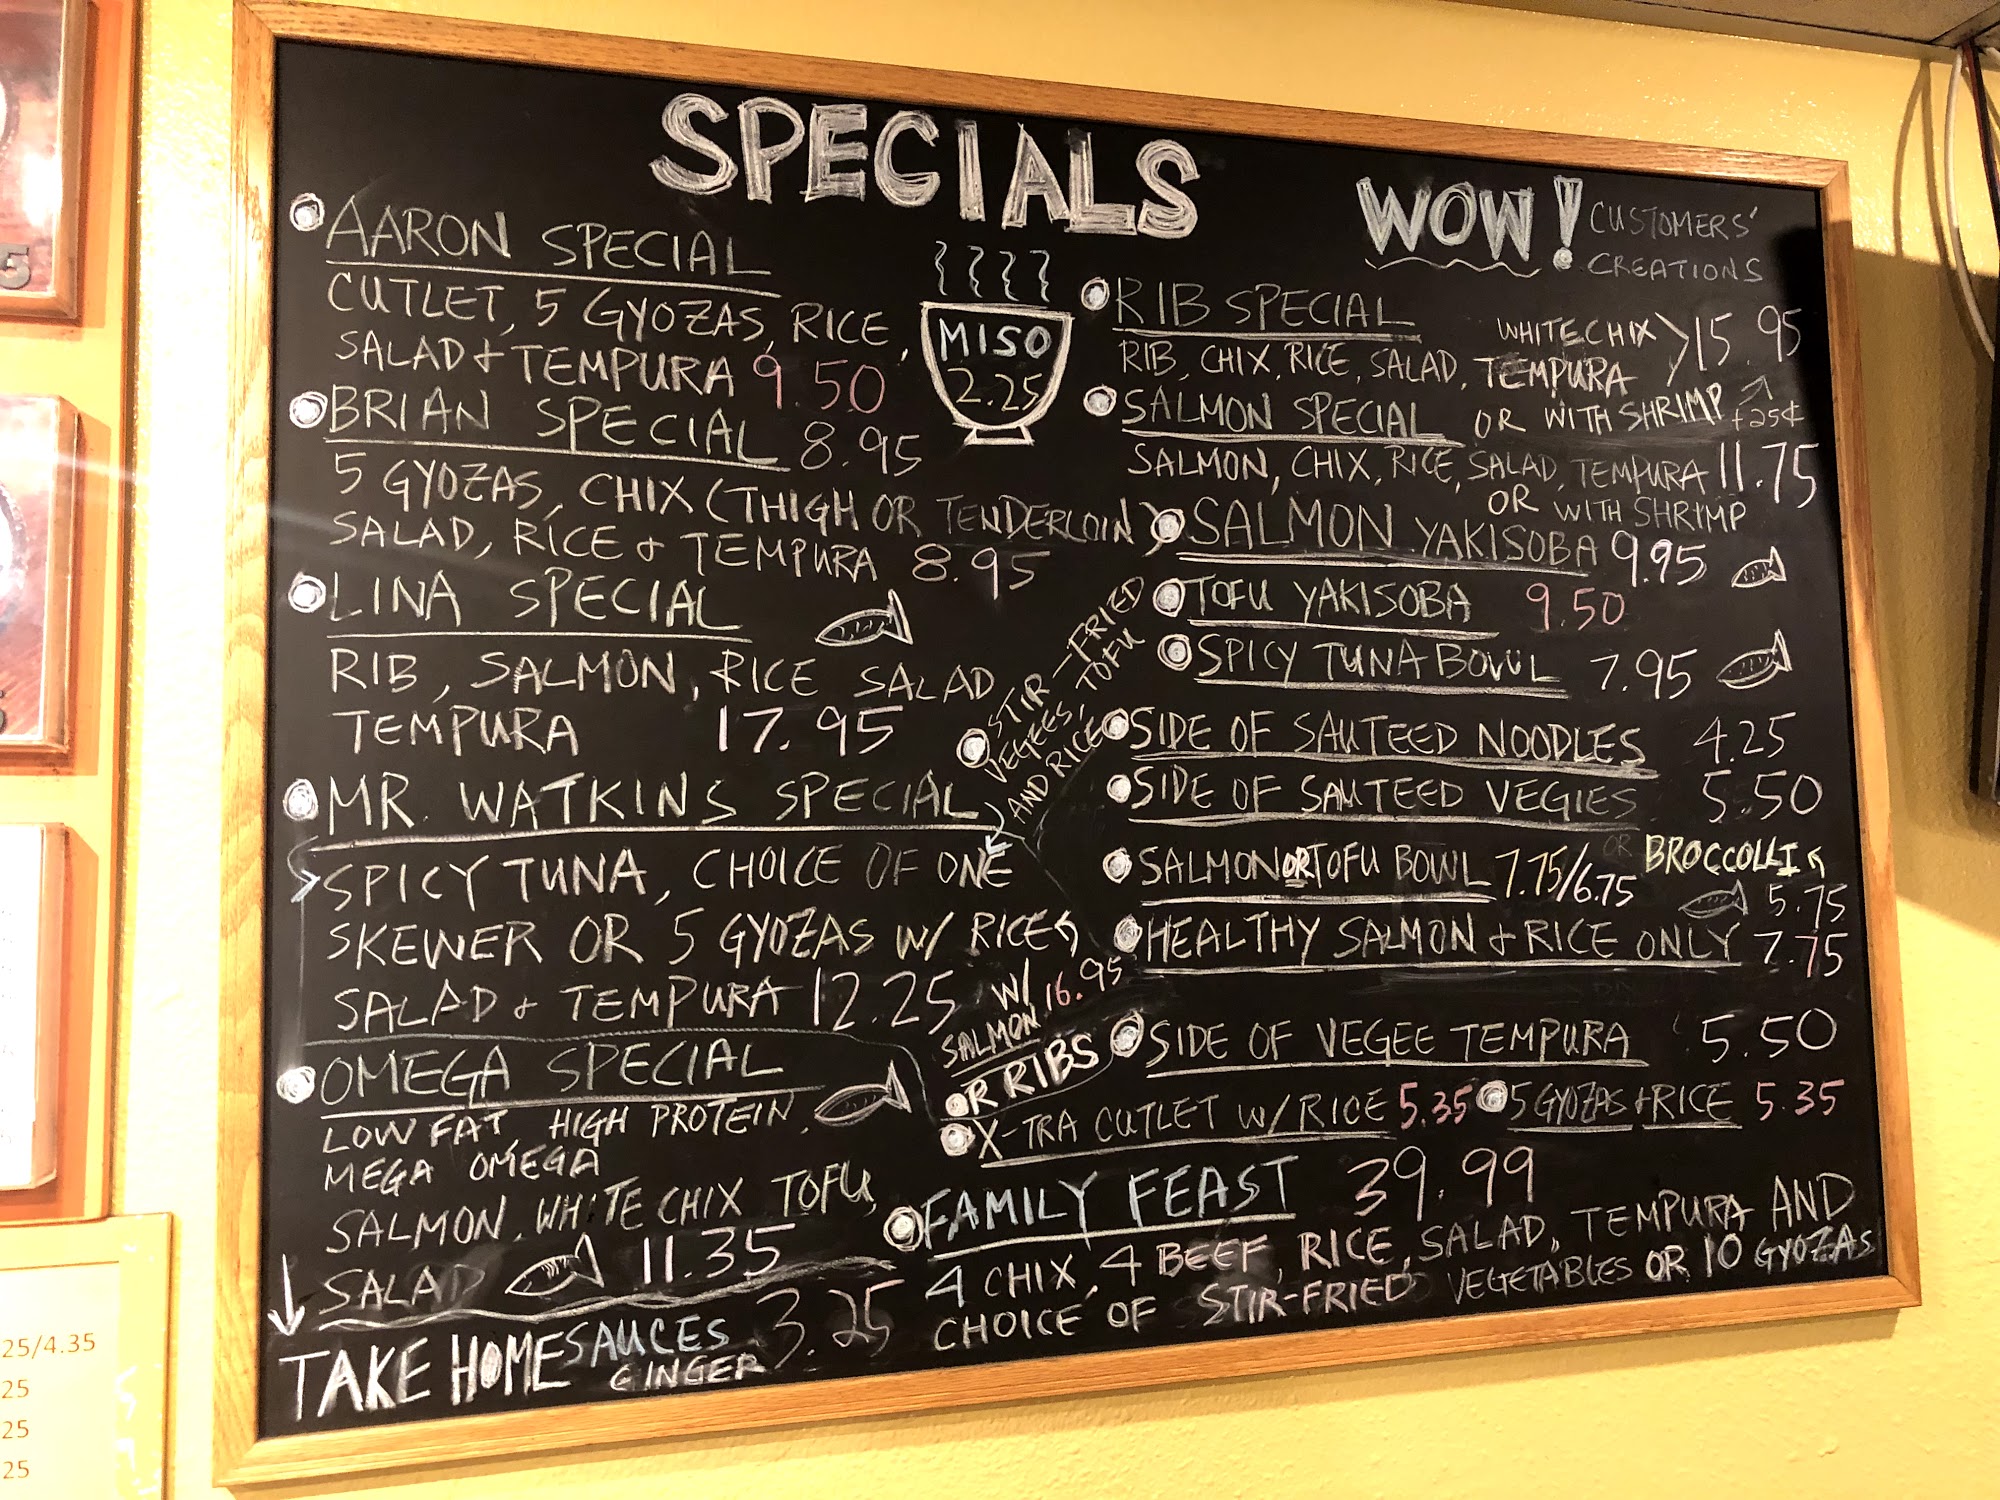 SPECIALS
WOW! CUSTOMERS'
CREATIONS
AARON SPECIAL
CUTLET, 5 GYOZAS, RICE,
SALAD + TEMPURA 9.50
BRIAN SPECIAL 8.95
5 GYOZAS, CHIX (THIGH OR TENDERLOIN)
SALAD, RICE + TEMPURA 8.95
LINA SPECIAL
RIB, SALMON, RICE SALAD
TEMPURA 17.95
MR. WATKINS SPECIAL
SPICY TUNA, CHOICE OF ONE
SKEWER OR 5 GYOZAS W/ RICE
SALAD + TEMPURA 12.25
STIR-FRIED
VEGEES, TOFU
AND RICE
W/
SALMON 16.95
OR RIBS
OMEGA SPECIAL
LOW FAT, HIGH PROTEIN,
MEGA OMEGA
SALMON, WHITE CHIX TOFU,
SALAD 11.35
TAKE HOME SAUCES 3.25
GINGER
MISO
2.25
RIB SPECIAL
WHITE CHIX > 15.95
RIB, CHIX, RICE, SALAD, TEMPURA
OR WITH SHRIMP +25¢
SALMON SPECIAL
SALMON, CHIX, RICE, SALAD, TEMPURA 11.75
OR WITH SHRIMP
SALMON YAKISOBA 9.95
TOFU YAKISOBA 9.50
SPICY TUNA BOWL 7.95
SIDE OF SAUTEED NOODLES 4.25
SIDE OF SAUTEED VEGIES 5.50
OR BROCCOLLI
5.75
SALMON OR TOFU BOWL 7.75/6.75
HEALTHY SALMON + RICE ONLY 7.75
SIDE OF VEGEE TEMPURA 5.50
X-TRA CUTLET W/RICE 5.35
5 GYOZAS + RICE 5.35
FAMILY FEAST 39.99
4 CHIX, 4 BEEF, RICE, SALAD, TEMPURA AND
CHOICE OF STIR-FRIED VEGETABLES OR 10 GYOZAS
25/4.35
25
25
25